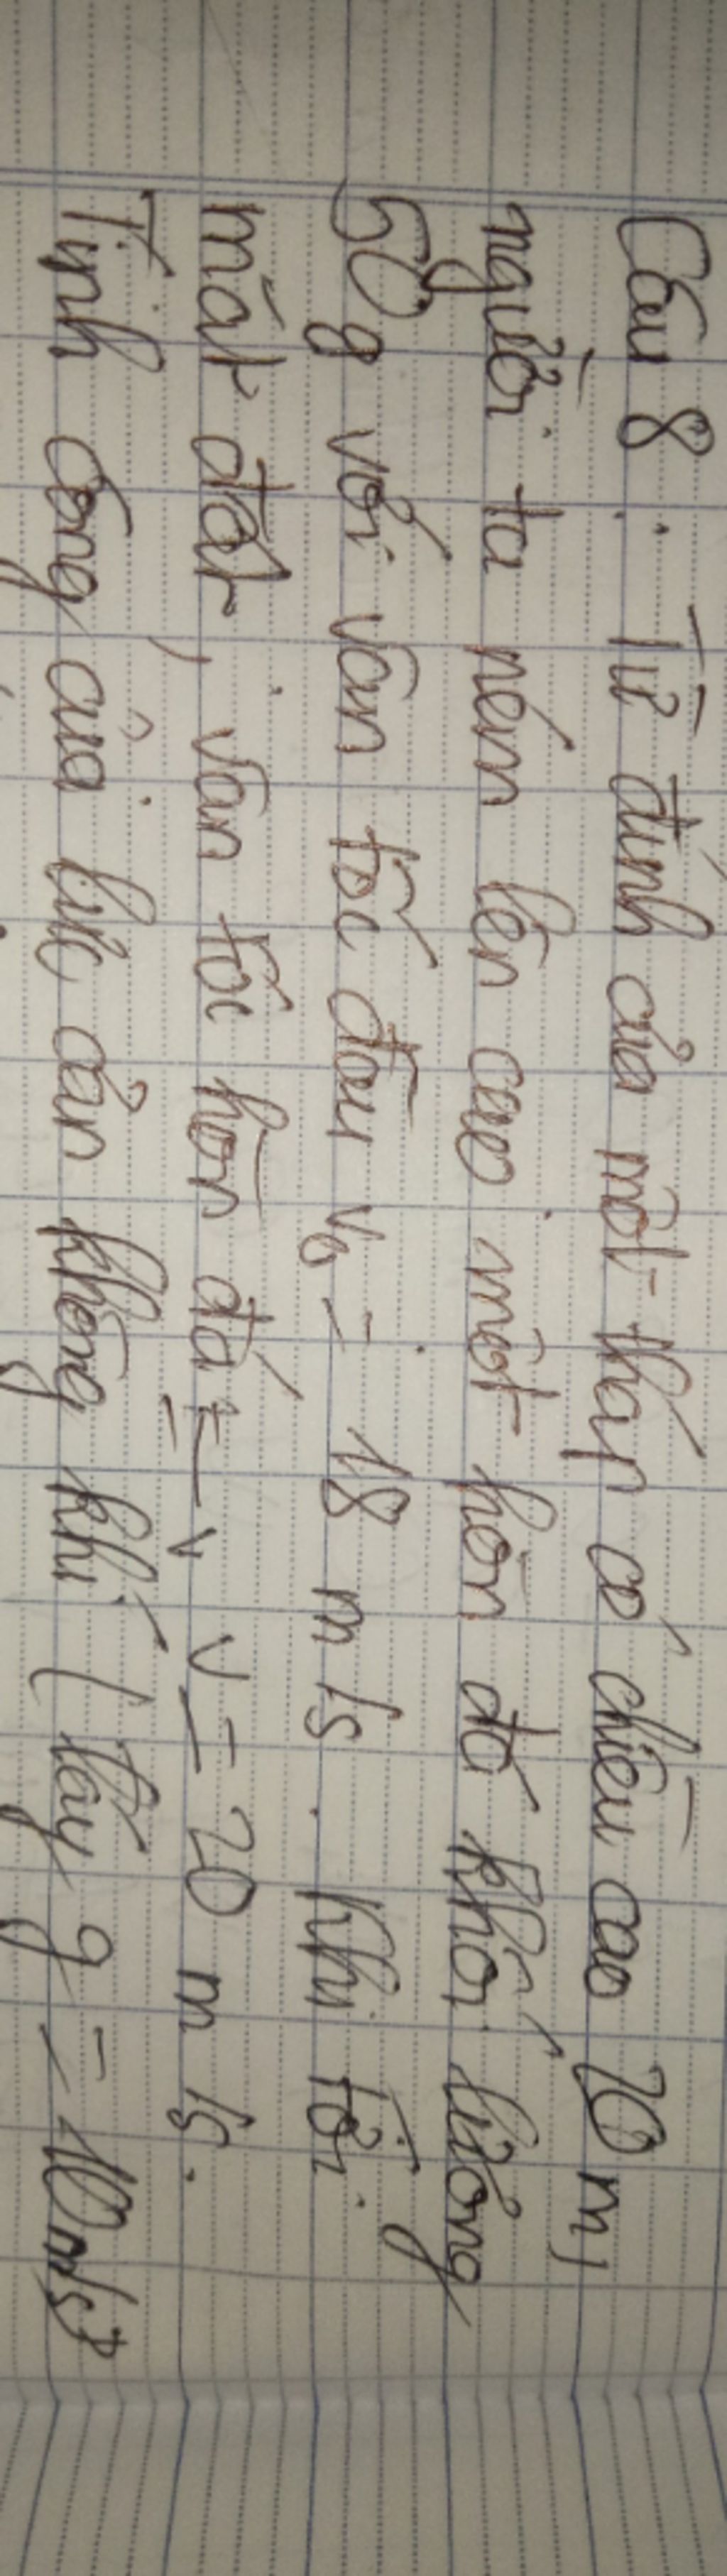 Câu 8 : Từ đỉnh của một tháp có chiều cao 20 m,
người ta ném lên cao một hòn đá khối lượng
50g với vận tốc đầu v₀ = 18 m/s. Khi tới
mặt đất, vận tốc hòn đá v = 20 m/s.
Tính công của lực cản không khí (lấy g = 10m/s²